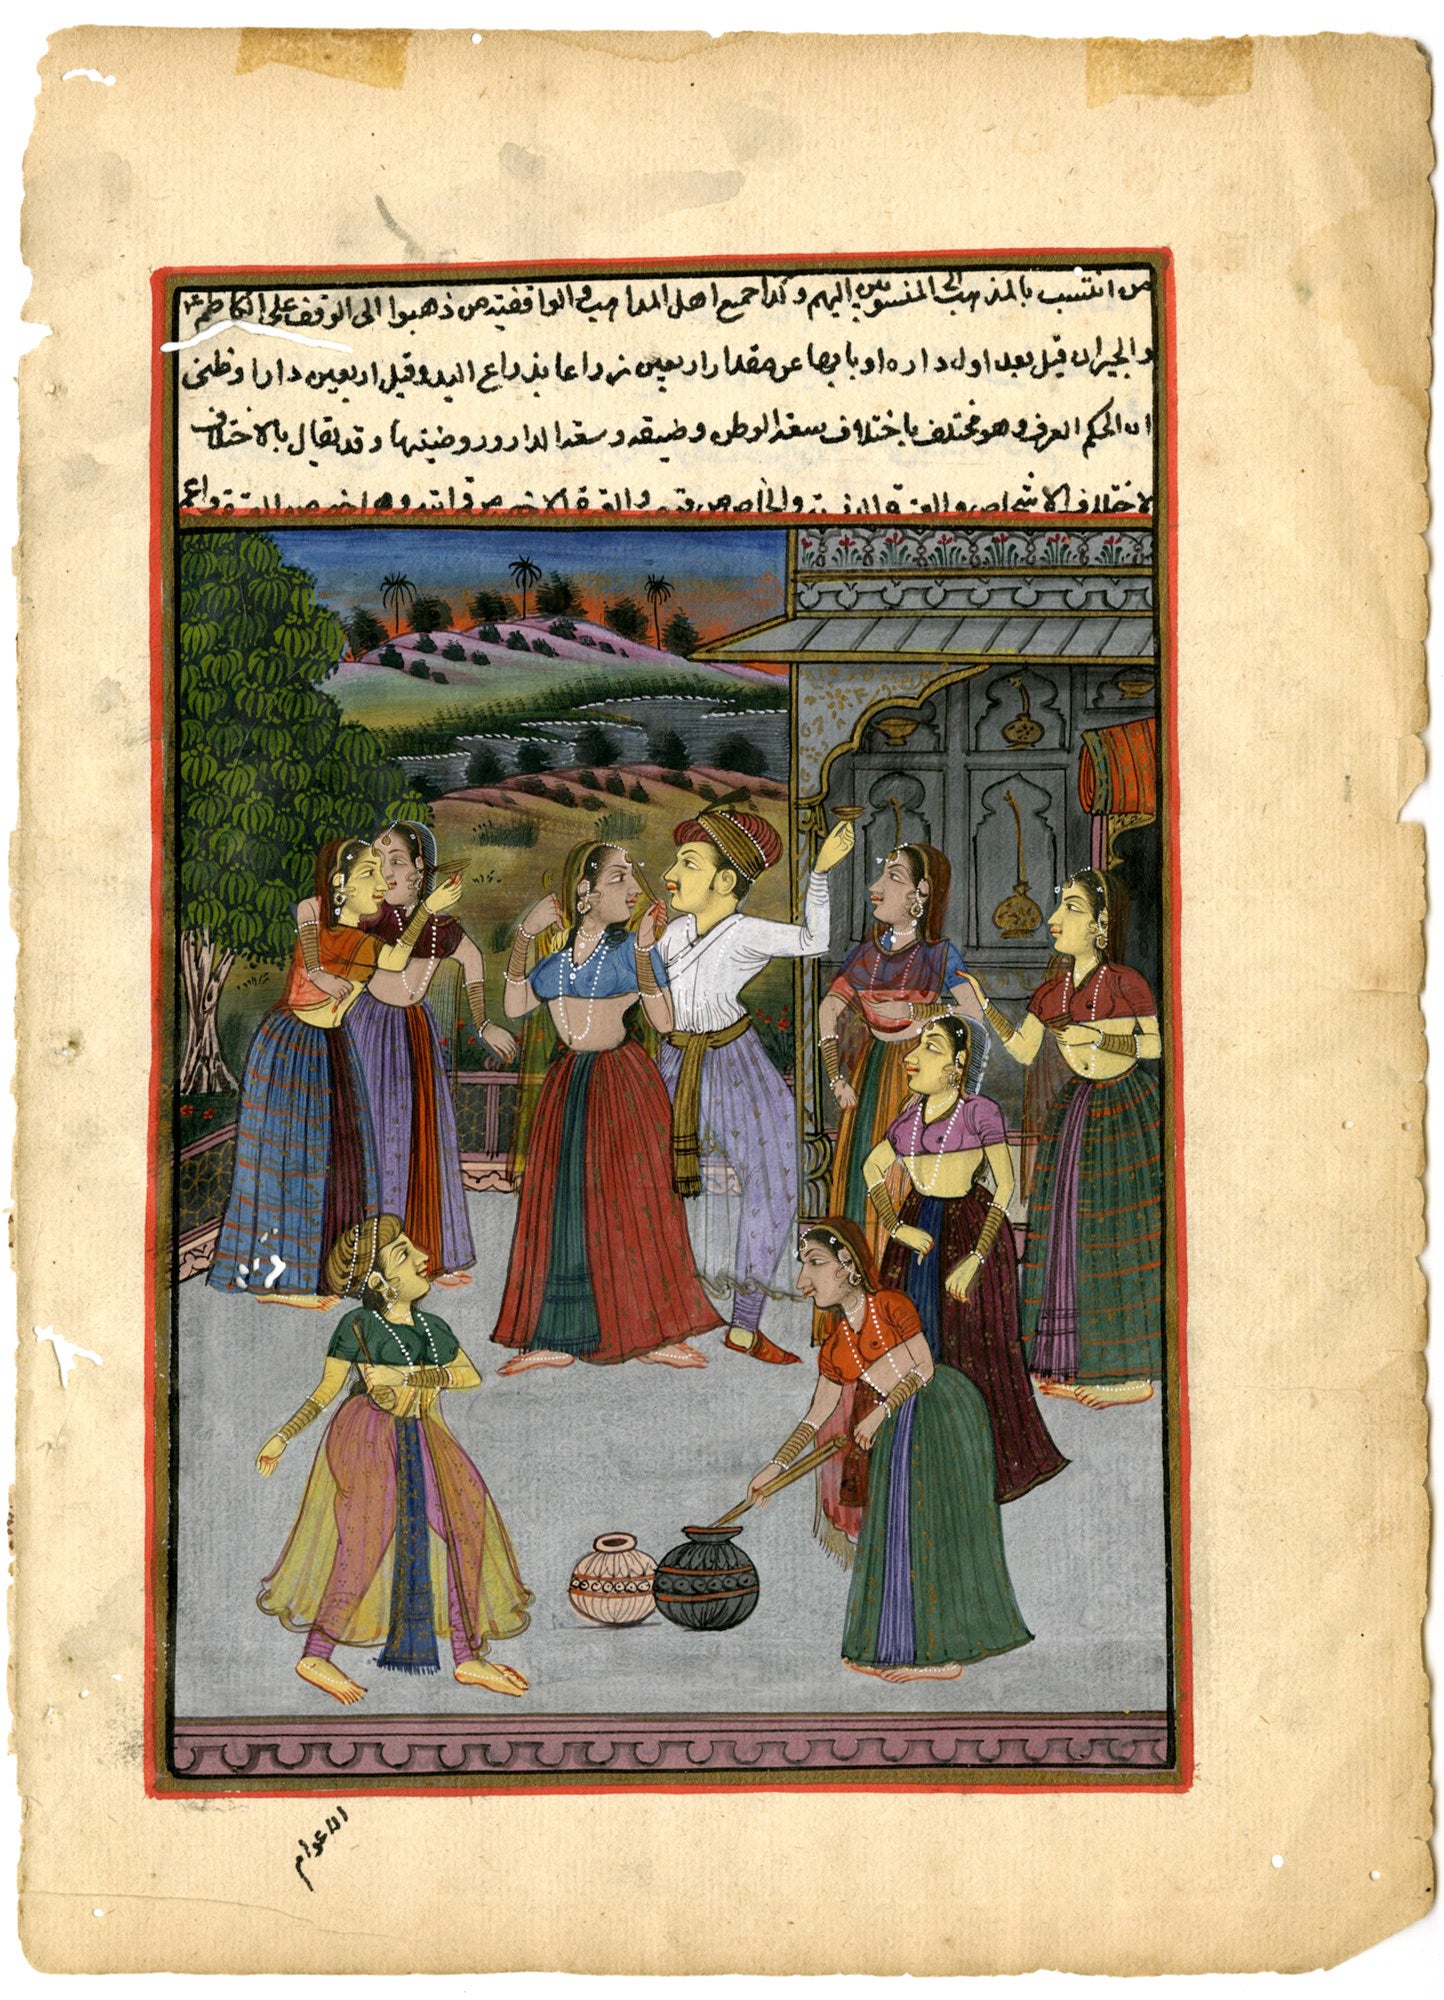 من انتسب بالمذهب الى المنسوبين اليهم وكذا جميع اهل المذاهب والواقفية من ذهبوا الى الوقف على الكاظم
والجيران قيل بعد اول داره او بابها عن مقدار اربعين ذراعا بذراع اليد وقيل اربعين دارا وظنى
ان الحكم العرف وهو مختلف باختلاف سعة الوطن وضيقه وسعة الدار وضيقها وقد يقال بالاختلاف
لاختلاف الاشخاص
الاعوام